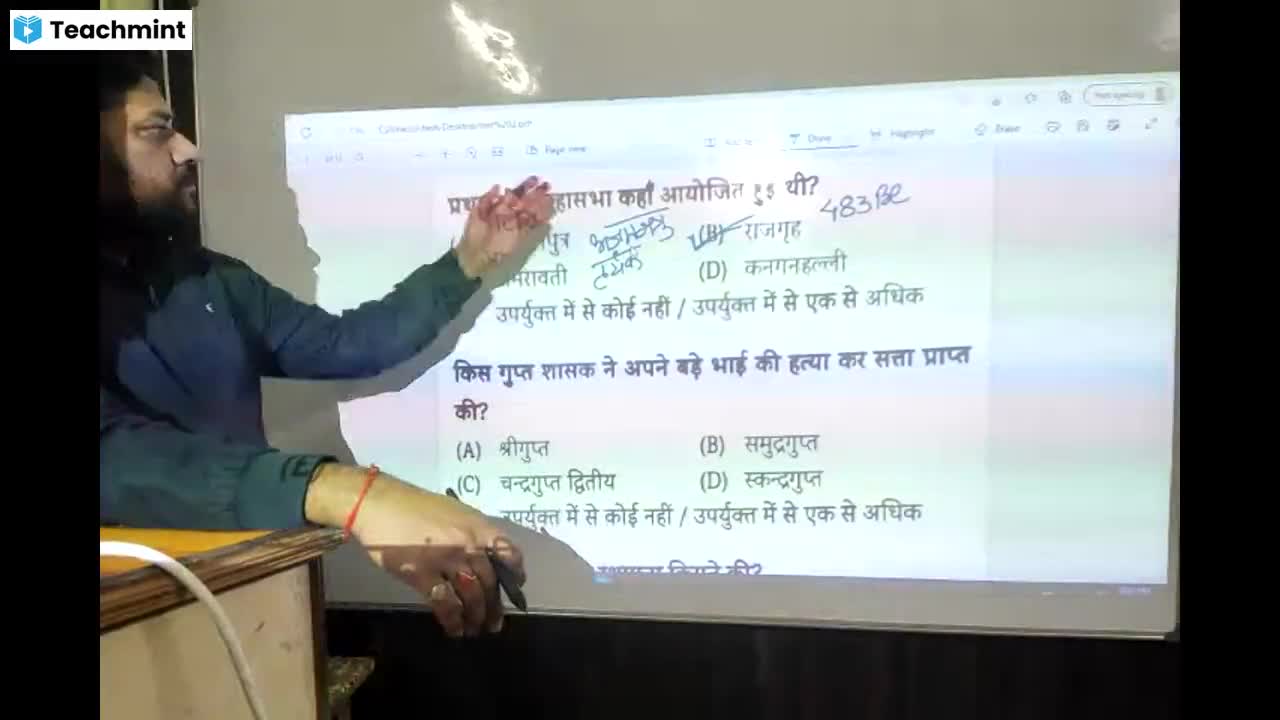 Teachmint
Page view
Draw
Highlight
Erase
महासभा कहाँ आयोजित हुइ थी?
483 BC
पुत्र
(B) राजगृह
अमरावती
(D) कनगनहल्ली
उपर्युक्त में से कोई नहीं / उपर्युक्त में से एक से अधिक
किस गुप्त शासक ने अपने बड़े भाई की हत्या कर सत्ता प्राप्त
की?
(A) श्रीगुप्त
(B) समुद्रगुप्त
(C) चन्द्रगुप्त द्वितीय
(D) स्कन्द्रगुप्त
उपर्युक्त में से कोई नहीं / उपर्युक्त में से एक से अधिक